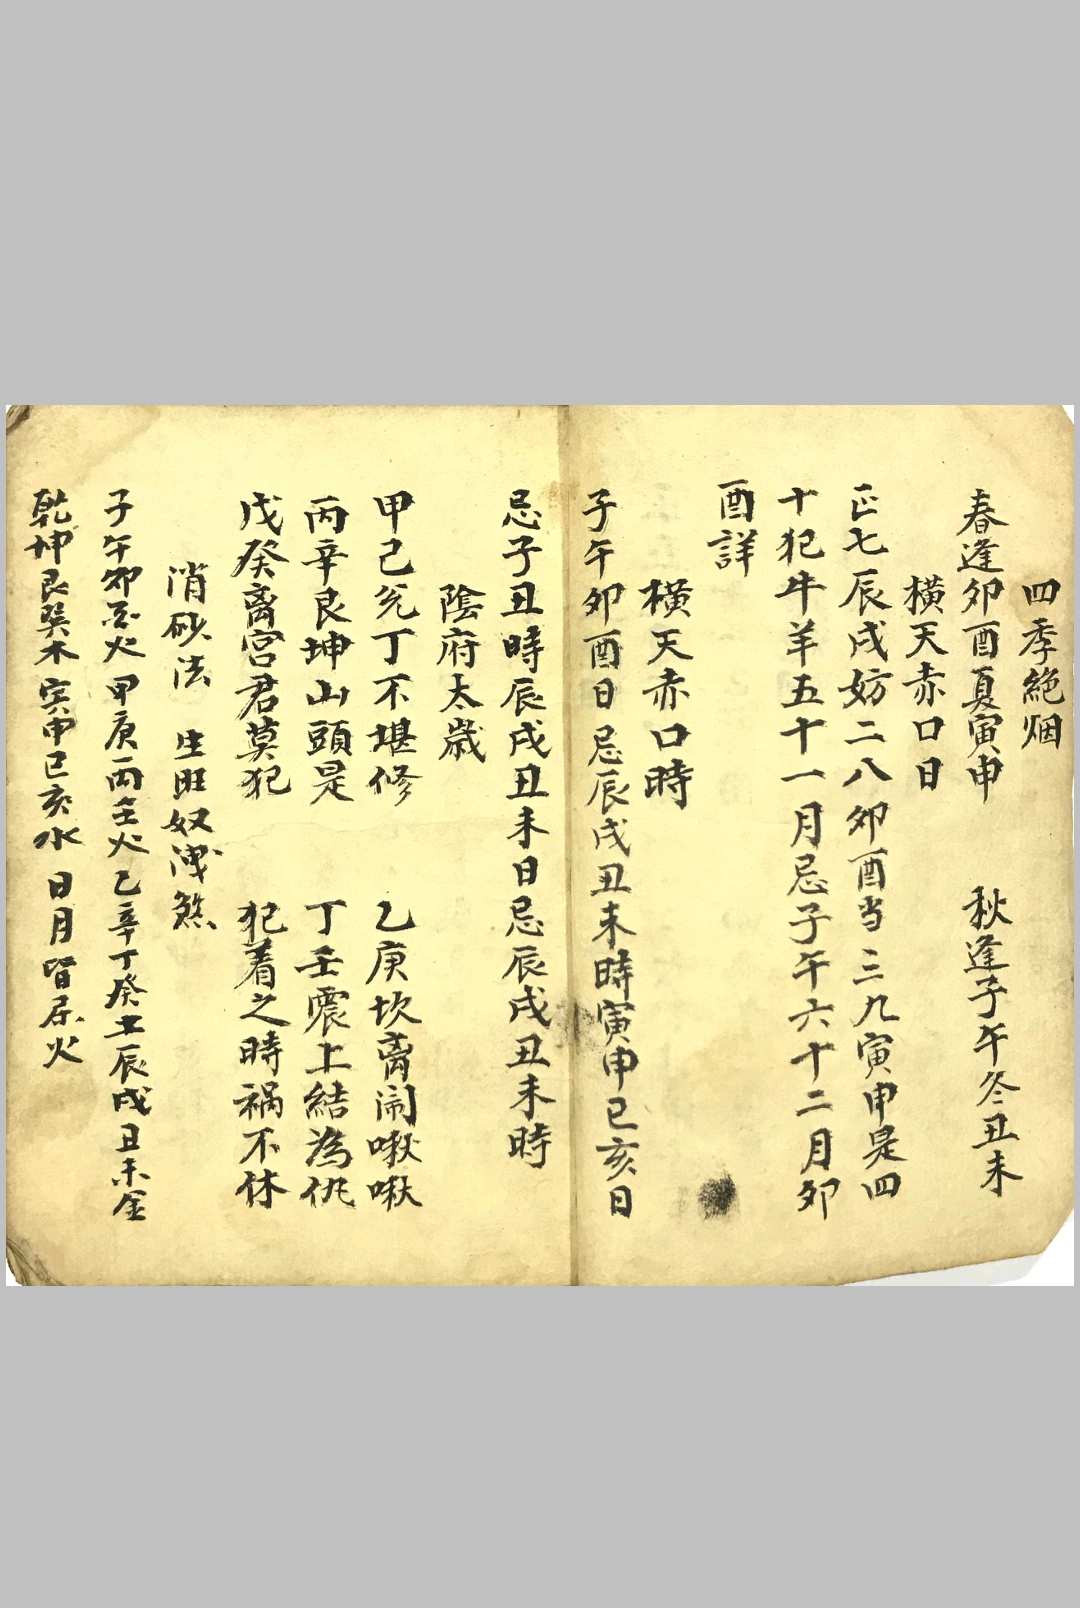 四季絶烟
春逢卯酉夏寅申　秋逢子午冬丑未
橫天赤口日
正七辰戌妨二八卯酉当三九寅申是四
十犯牛羊五十一月忌子午六十二月卯
酉詳
橫天赤口時
子午卯酉日忌辰戌丑未時寅申巳亥日
忌子丑時辰戌丑未日忌辰戌丑未時
陰府太歲
甲己兊丁不堪修　乙庚坎离闹啾啾
丙辛艮坤山頭是　丁壬震上結為仇
戊癸离宮君莫犯　犯着之時禍不休
消砂法　生旺奴洩煞
子午卯酉火甲庚丙壬火乙辛丁癸土辰戌丑未金
乾坤艮巽木寅申巳亥水日月皆屬火